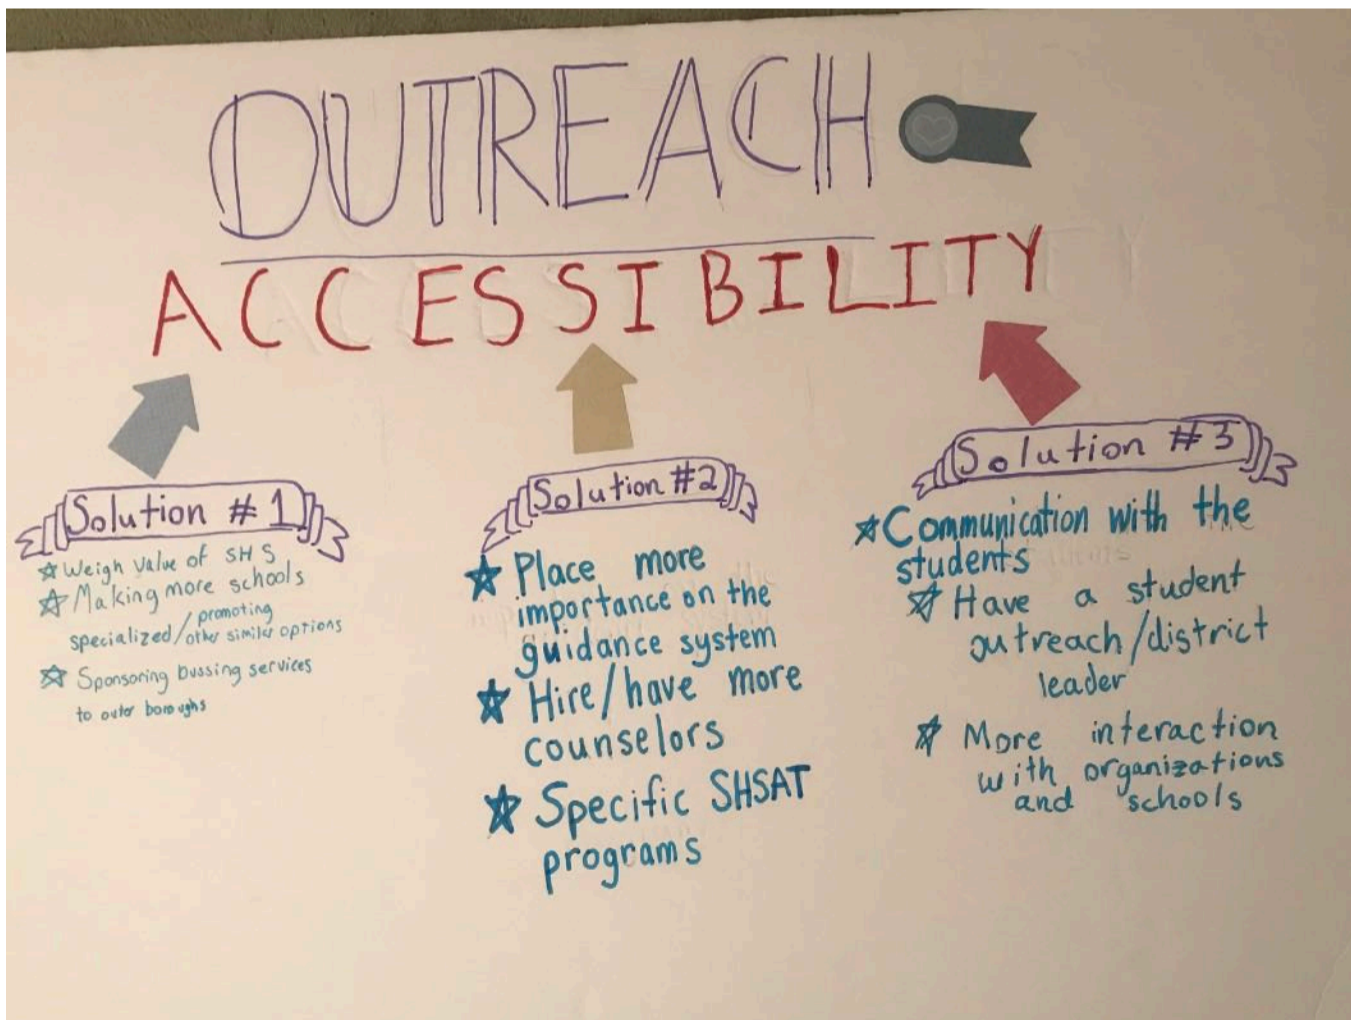 OUTREACH
ACCESSIBILITY
Solution # 1
Weigh value of SHS
Making more schools
specialized/promoting
other similar options
Sponsoring bussing services
to outer boroughs
Solution #2
Place more
importance on the
guidance system
Hire/have more
counselors
Specific SHSAT
programs
Solution #3
Communication with the
students
Have a student
outreach/district
leader
More interaction
with organizations
and schools